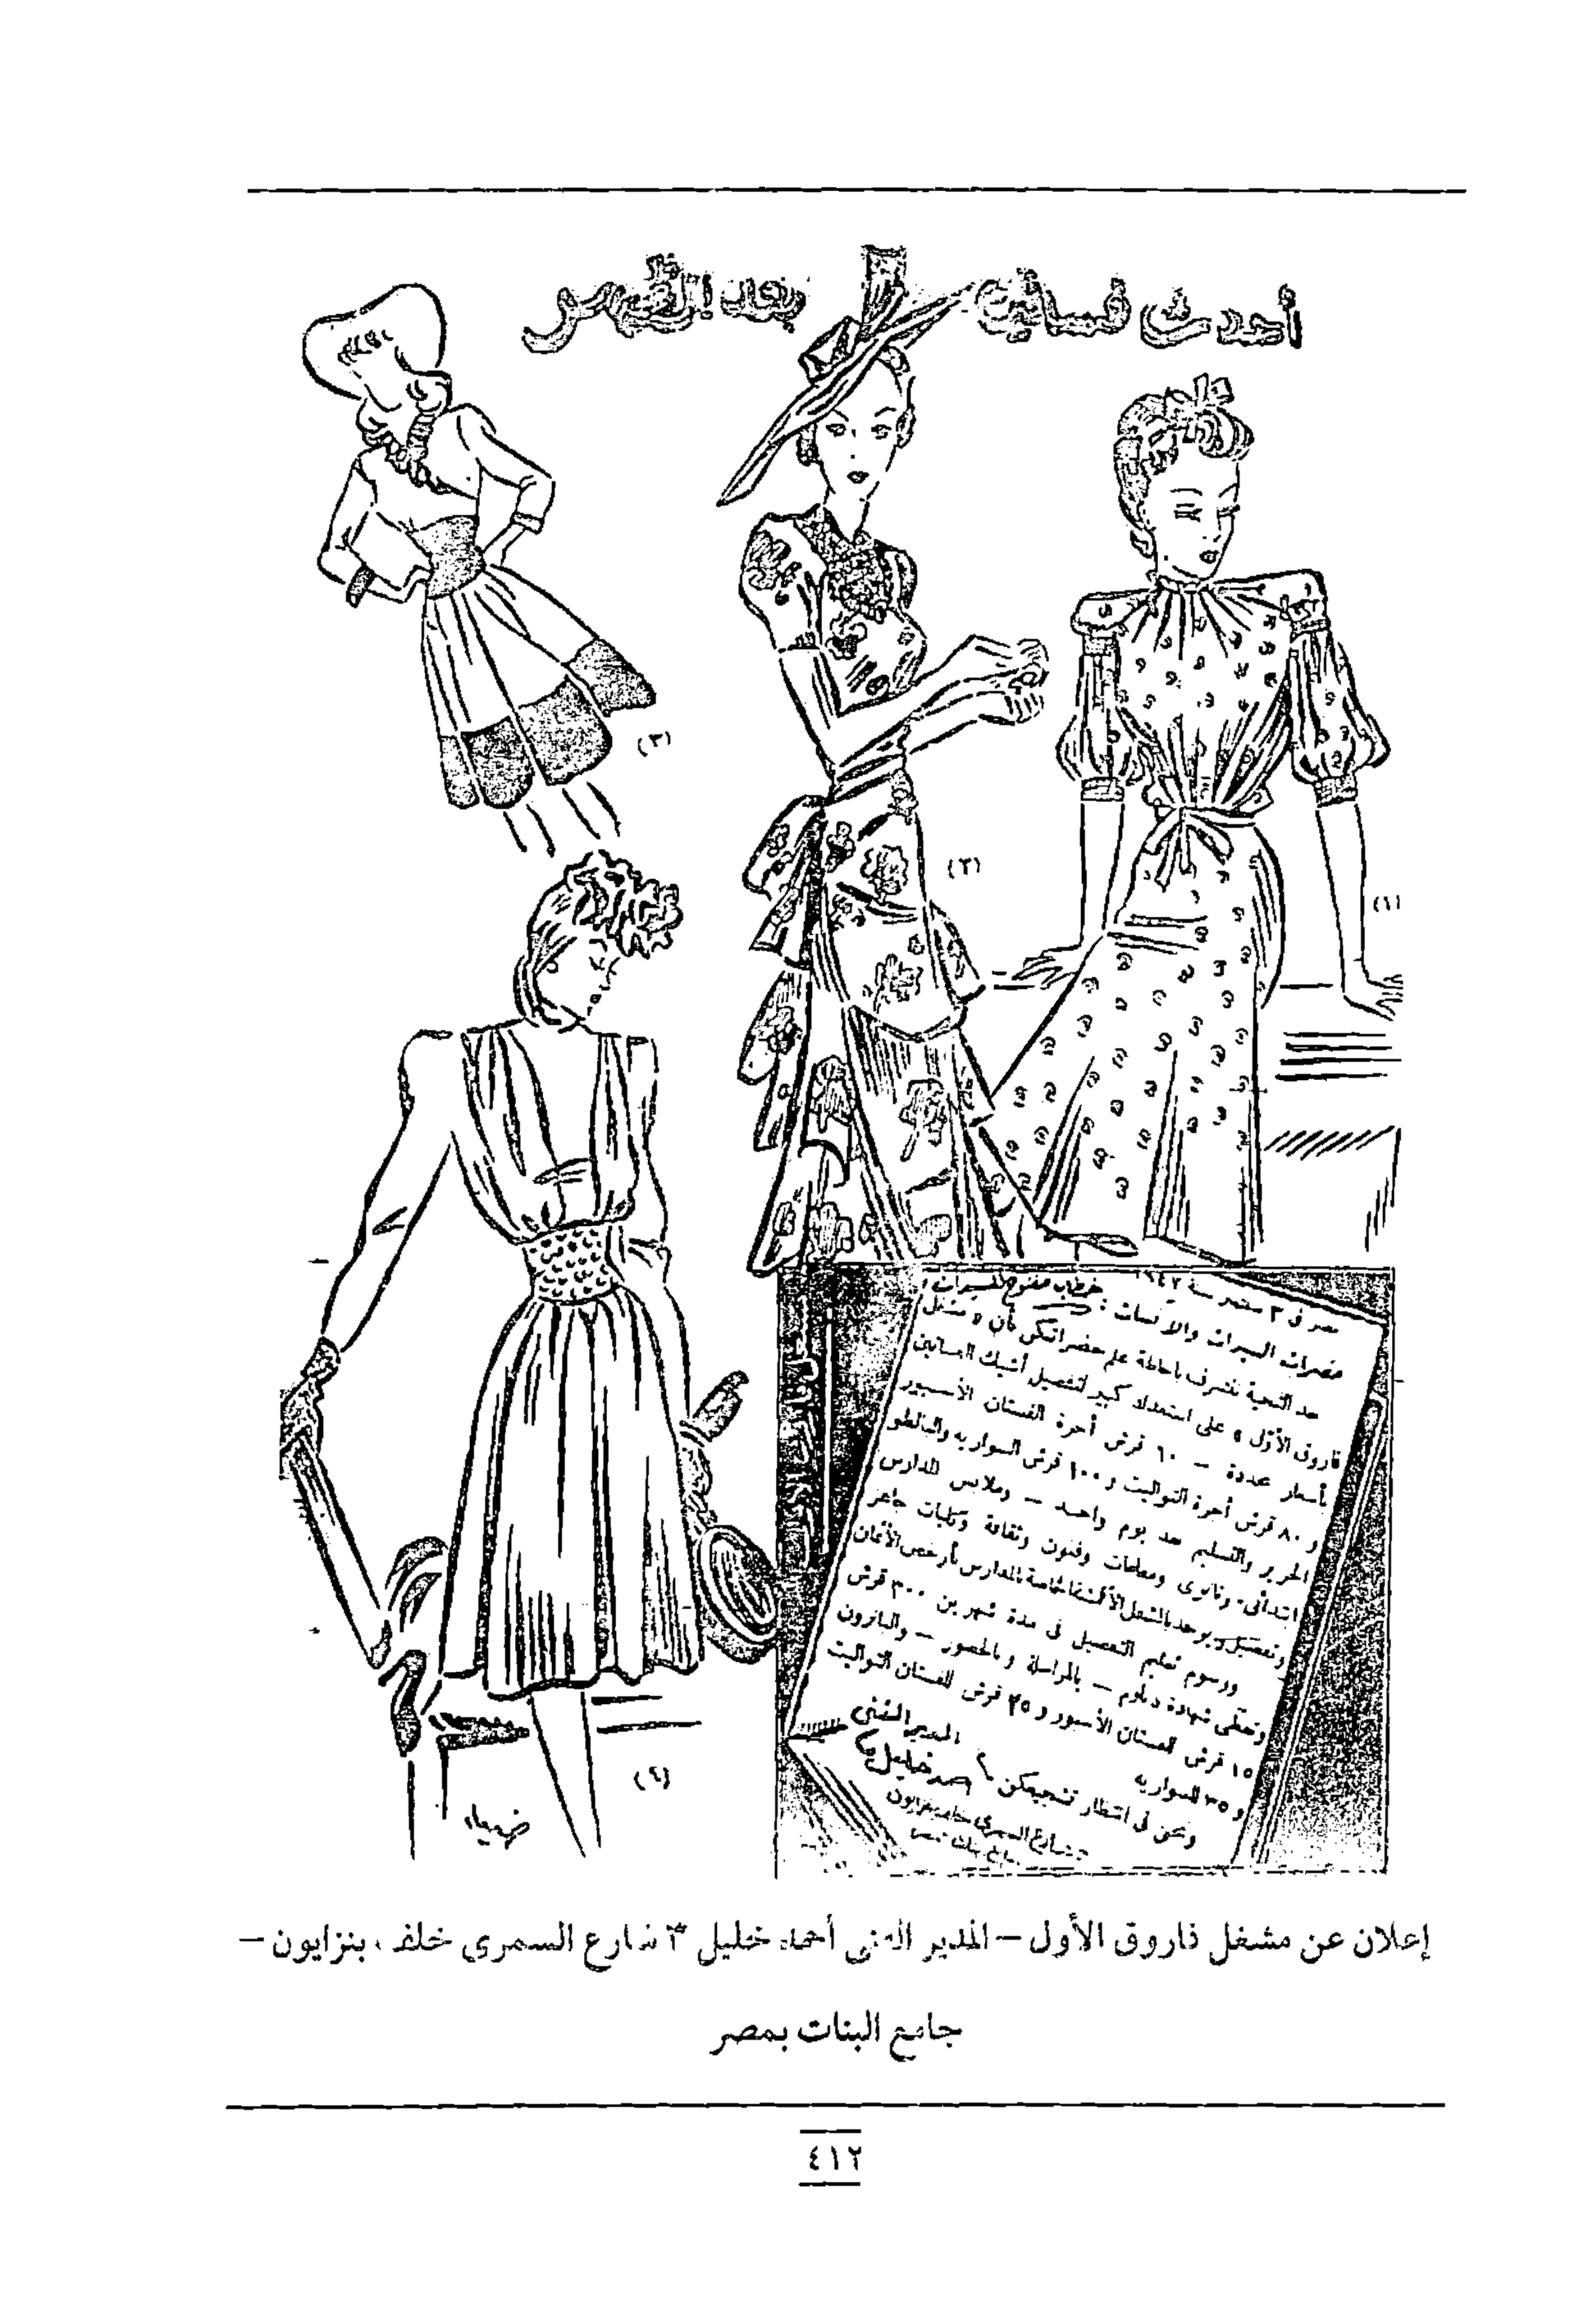 أحدث فساتين بعد الظهر
(١)
(٢)
(٣)
(٤)
مصر فى ٣ سبتمبر سنة ١٩٤٢
خطاب مفتوح للسيدات
حضرات السيدات والآنسات :
بعد التحية نتشرف باحاطة علم حضراتكن بأن « مشغل
فاروق الأول » على استعداد كبير لتفصيل أشيك الفساتين
بأسعار محددة – ٦٠ قرش أجرة الفستان الأسبور
و ٨٠ قرش أجرة التواليت و ١٠٠ قرش السواريه والبالطو
الحرير والتسليم بعد يوم واحد – وملابس المدارس
ابتدائى وثانوى ومعلمات وفنون وثقافة وكليات جاهز
وتفصيل ويوجد بالمشغل الأقمشة الخاصة بالمدارس بأرخص الأثمان
ورسوم تعليم التفصيل فى مدة شهرين ٣٠٠ قرش
وتعطى شهادة دبلوم – بالمراسلة وبالحضور – والباترون
١٥ قرش للفستان الأسبور و ٢٥ قرش للفستان التواليت
و ٣٥ للسواريه
ونحن فى انتظار تشجيعكن
المدير الفنى
أحمد خليل
٣ شارع السمرى خلف بنزايون
إعلان عن مشغل فاروق الأول – المدير الفنى أحمد خليل ٣ شارع السمرى خلف بنزايون –
جامع البنات بمصر
٤١٢